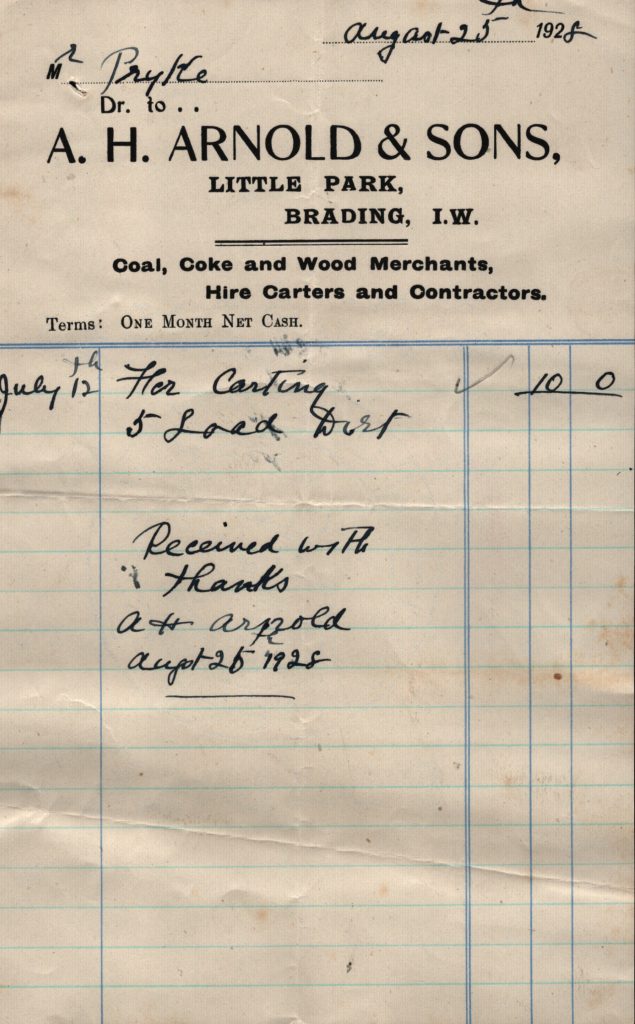 august 25th 1928
Mr Pryke
Dr. to . .
A. H. ARNOLD & SONS,
LITTLE PARK,
BRADING, I.W.
Coal, Coke and Wood Merchants,
Hire Carters and Contractors.
Terms: ONE MONTH NET CASH.
July 12th For Carting 10 0
5 Load Dirt
Received with
thanks
A H Arnold
augst 25th 1928